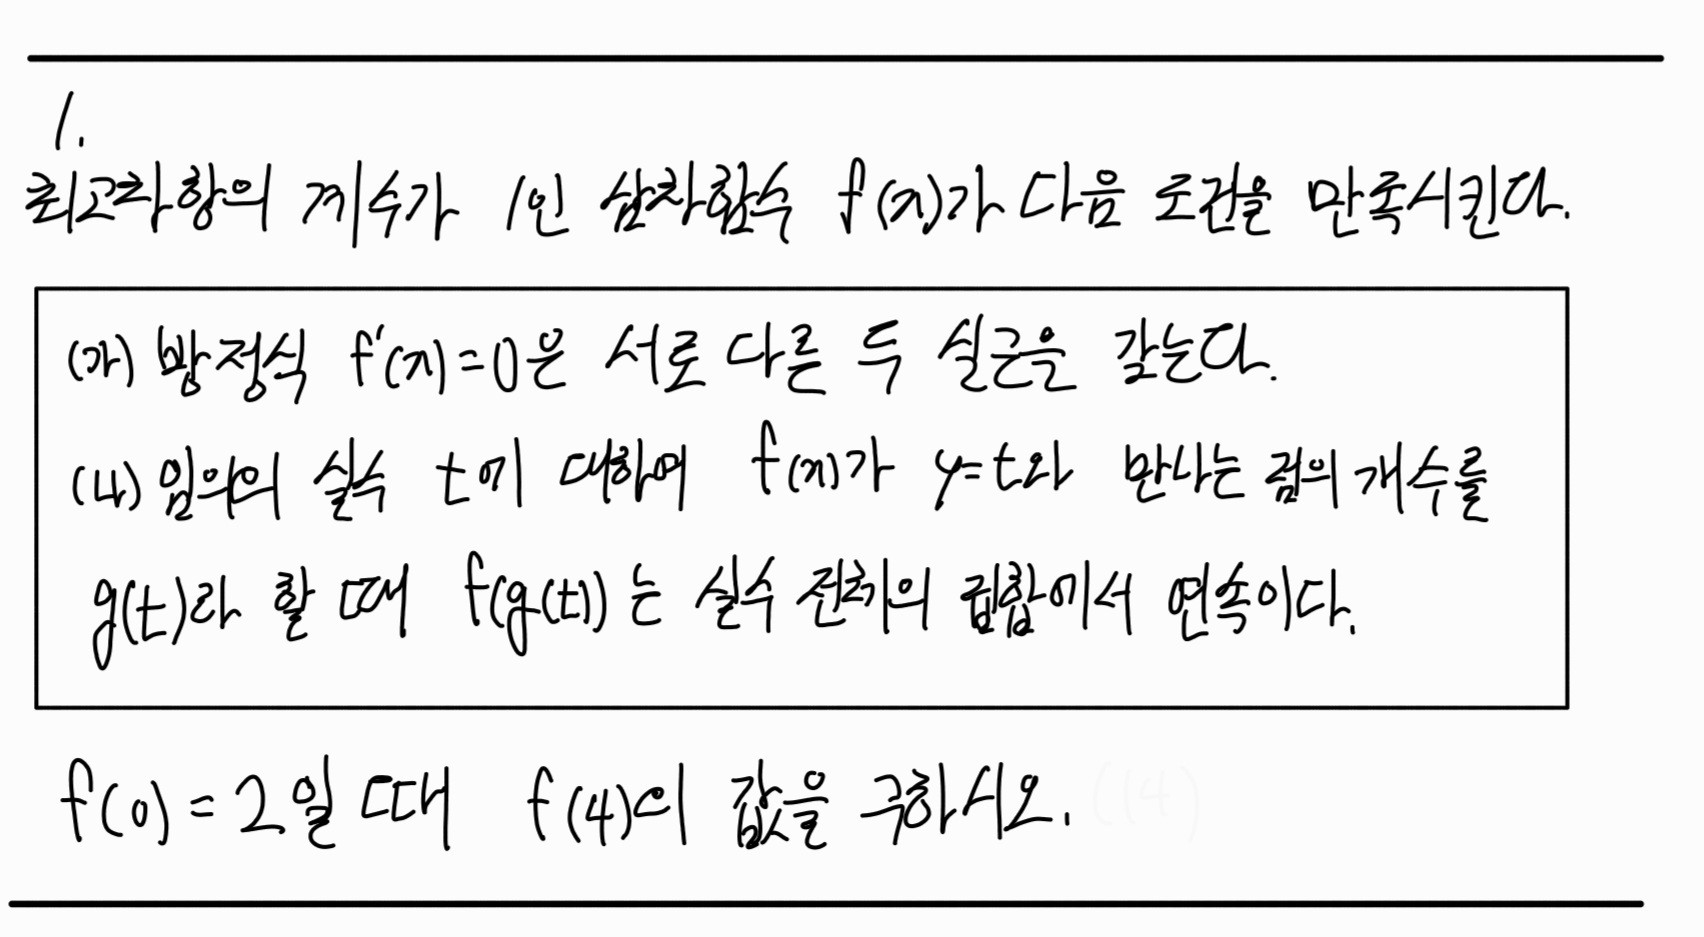 1.
최고차항의 계수가 1인 삼차함수 f(x)가 다음 조건을 만족시킨다.
(가) 방정식 f'(x)=0은 서로 다른 두 실근을 갖는다.
(나) 임의의 실수 t에 대하여 f(x)가 y=t와 만나는 점의 개수를
g(t)라 할 때 f(g(t))는 실수 전체의 집합에서 연속이다.
f(0)=2일 때 f(4)의 값을 구하시오. (14)